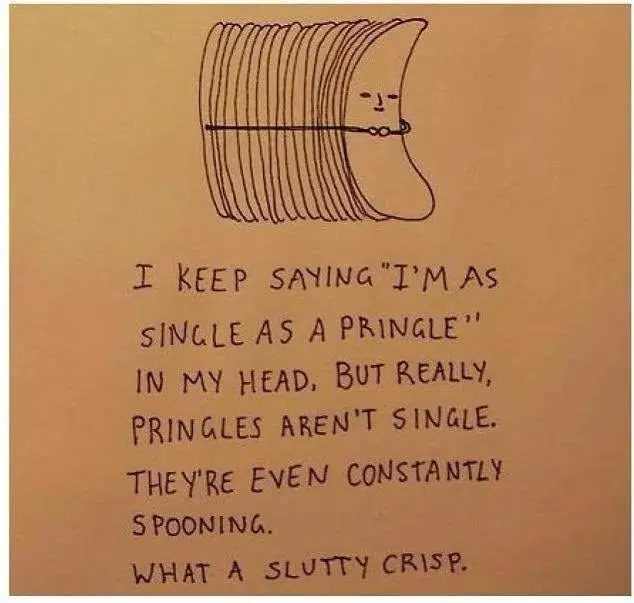 I KEEP SAYING "I'M AS
SINGLE AS A PRINGLE"
IN MY HEAD, BUT REALLY,
PRINGLES AREN'T SINGLE.
THEY'RE EVEN CONSTANTLY
SPOONING.
WHAT A SLUTTY CRISP.